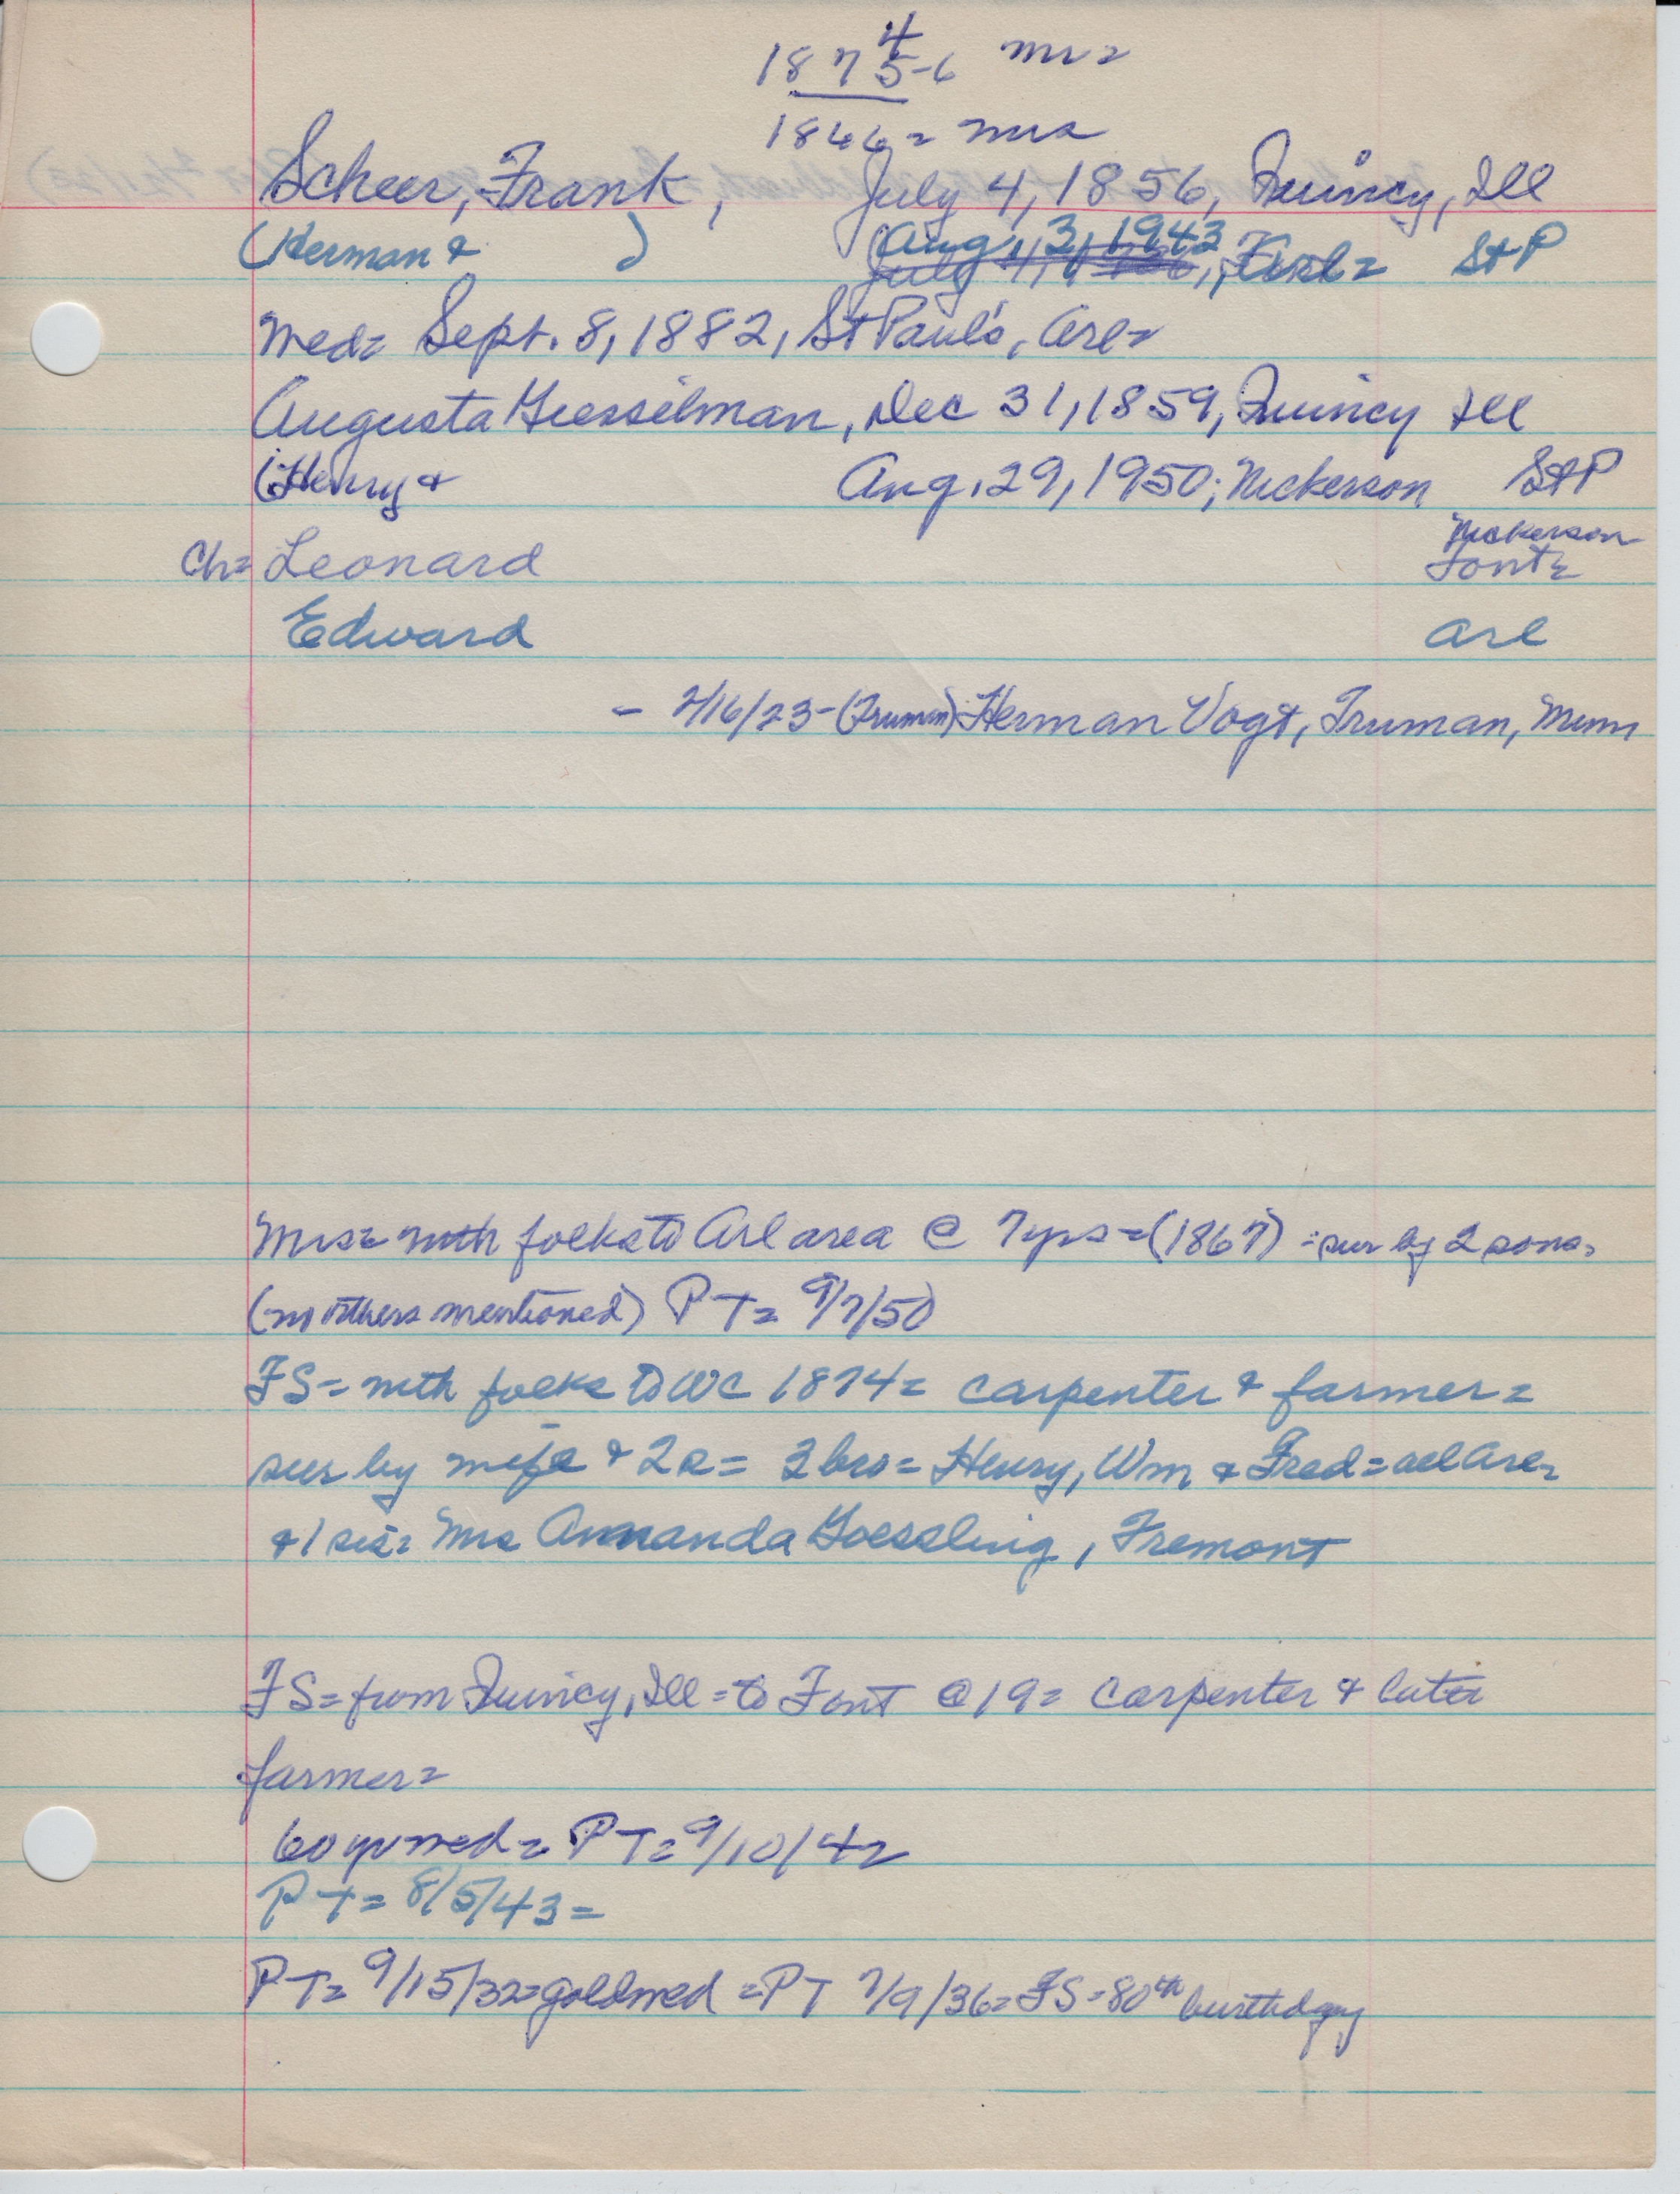 4
1875-6 mr=
1866= mrs
Scheer, Frank, July 4, 1856, Quincy, Ill
(Herman & ) Aug. 3, 1943, Arl= St P
wed= Sept. 8, 1882, St Paul's, Arl=
Augusta Giesselman, Dec 31, 1859, Quincy Ill
(Henry & Aug. 29, 1950; Nickerson St P
Nickerson
Ch= Leonard Font=
Edward Arl
- 2/16/23-(Truman) Herman Vogt, Truman, Minn
Mrs= with folks to Arl area @ 7 yrs=(1867) =sur by 2 sons=
(no others mentioned) PT= 9/7/50
FS= with folks to WC 1874= carpenter & farmer=
sur by wife & 2s= 3 bro= Henry, Wm & Fred= all Arl=
& 1 sis= Mrs Amanda Goessling, Fremont
FS= from Quincy, Ill= to Font @ 19= carpenter & later
farmer=
60 yr wed= PT= 9/10/42
PT= 8/5/43=
PT= 9/15/32=gold wed =PT 7/9/36= FS-80th birthday